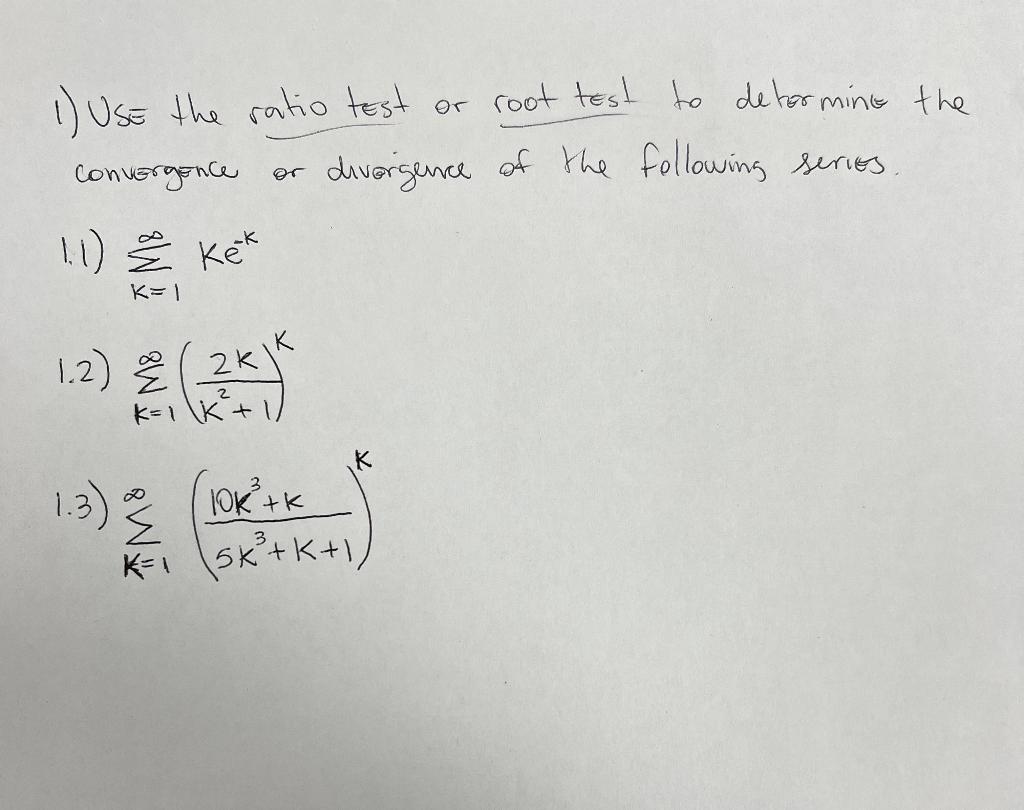 1) Use the ratio test or root test to determine the
convergence or divergence of the following series.
1.1) ∞ Σ K=1 Ke^-K
1.2) ∞ Σ K=1 (2K / K^2 + 1)^K
1.3) ∞ Σ K=1 (10K^3 + K / 5K^3 + K + 1)^K